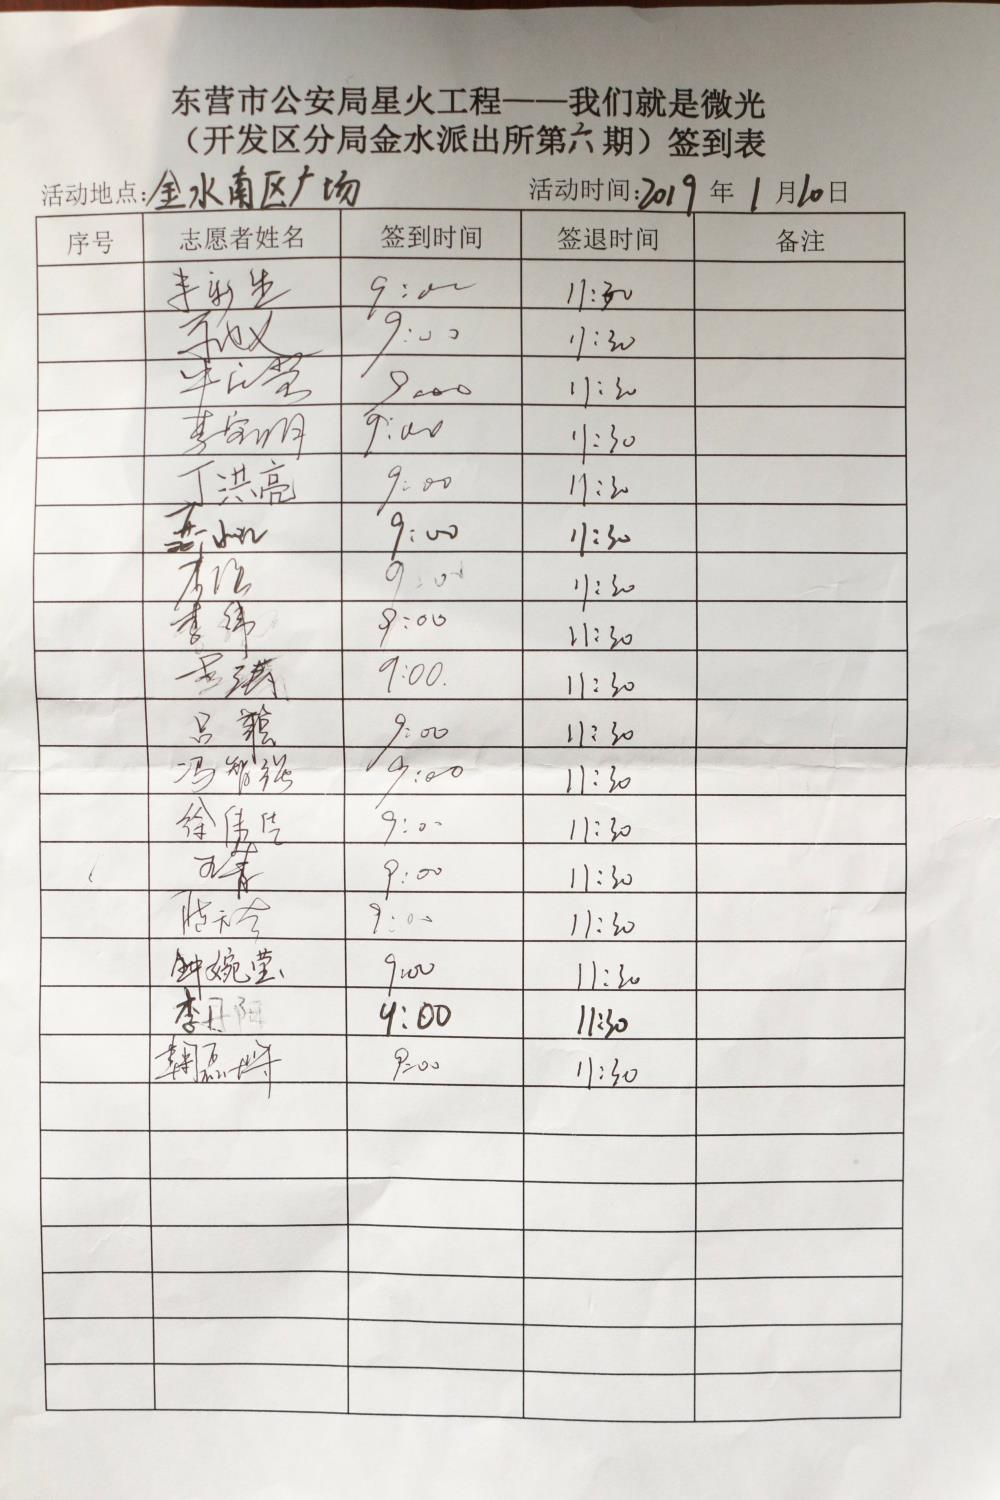 东营市公安局星火工程——我们就是微光
（开发区分局金水派出所第六期）签到表
活动地点:金水南区广场 活动时间:2019年1月10日
序号 志愿者姓名 签到时间 签退时间 备注
9:00 11:30
9:00 11:30
9:00 11:30
李 明 9:00 11:30
丁洪亮 9:00 11:30
9:00 11:30
9:00 11:30
李伟 9:00 11:30
9:00 11:30
吕颖 9:00 11:30
冯智强 9:00 11:30
徐 9:00 11:30
青 9:00 11:30
陈 9:00 11:30
钟婉莹 9:00 11:30
李丹阳 9:00 11:30
9:00 11:30